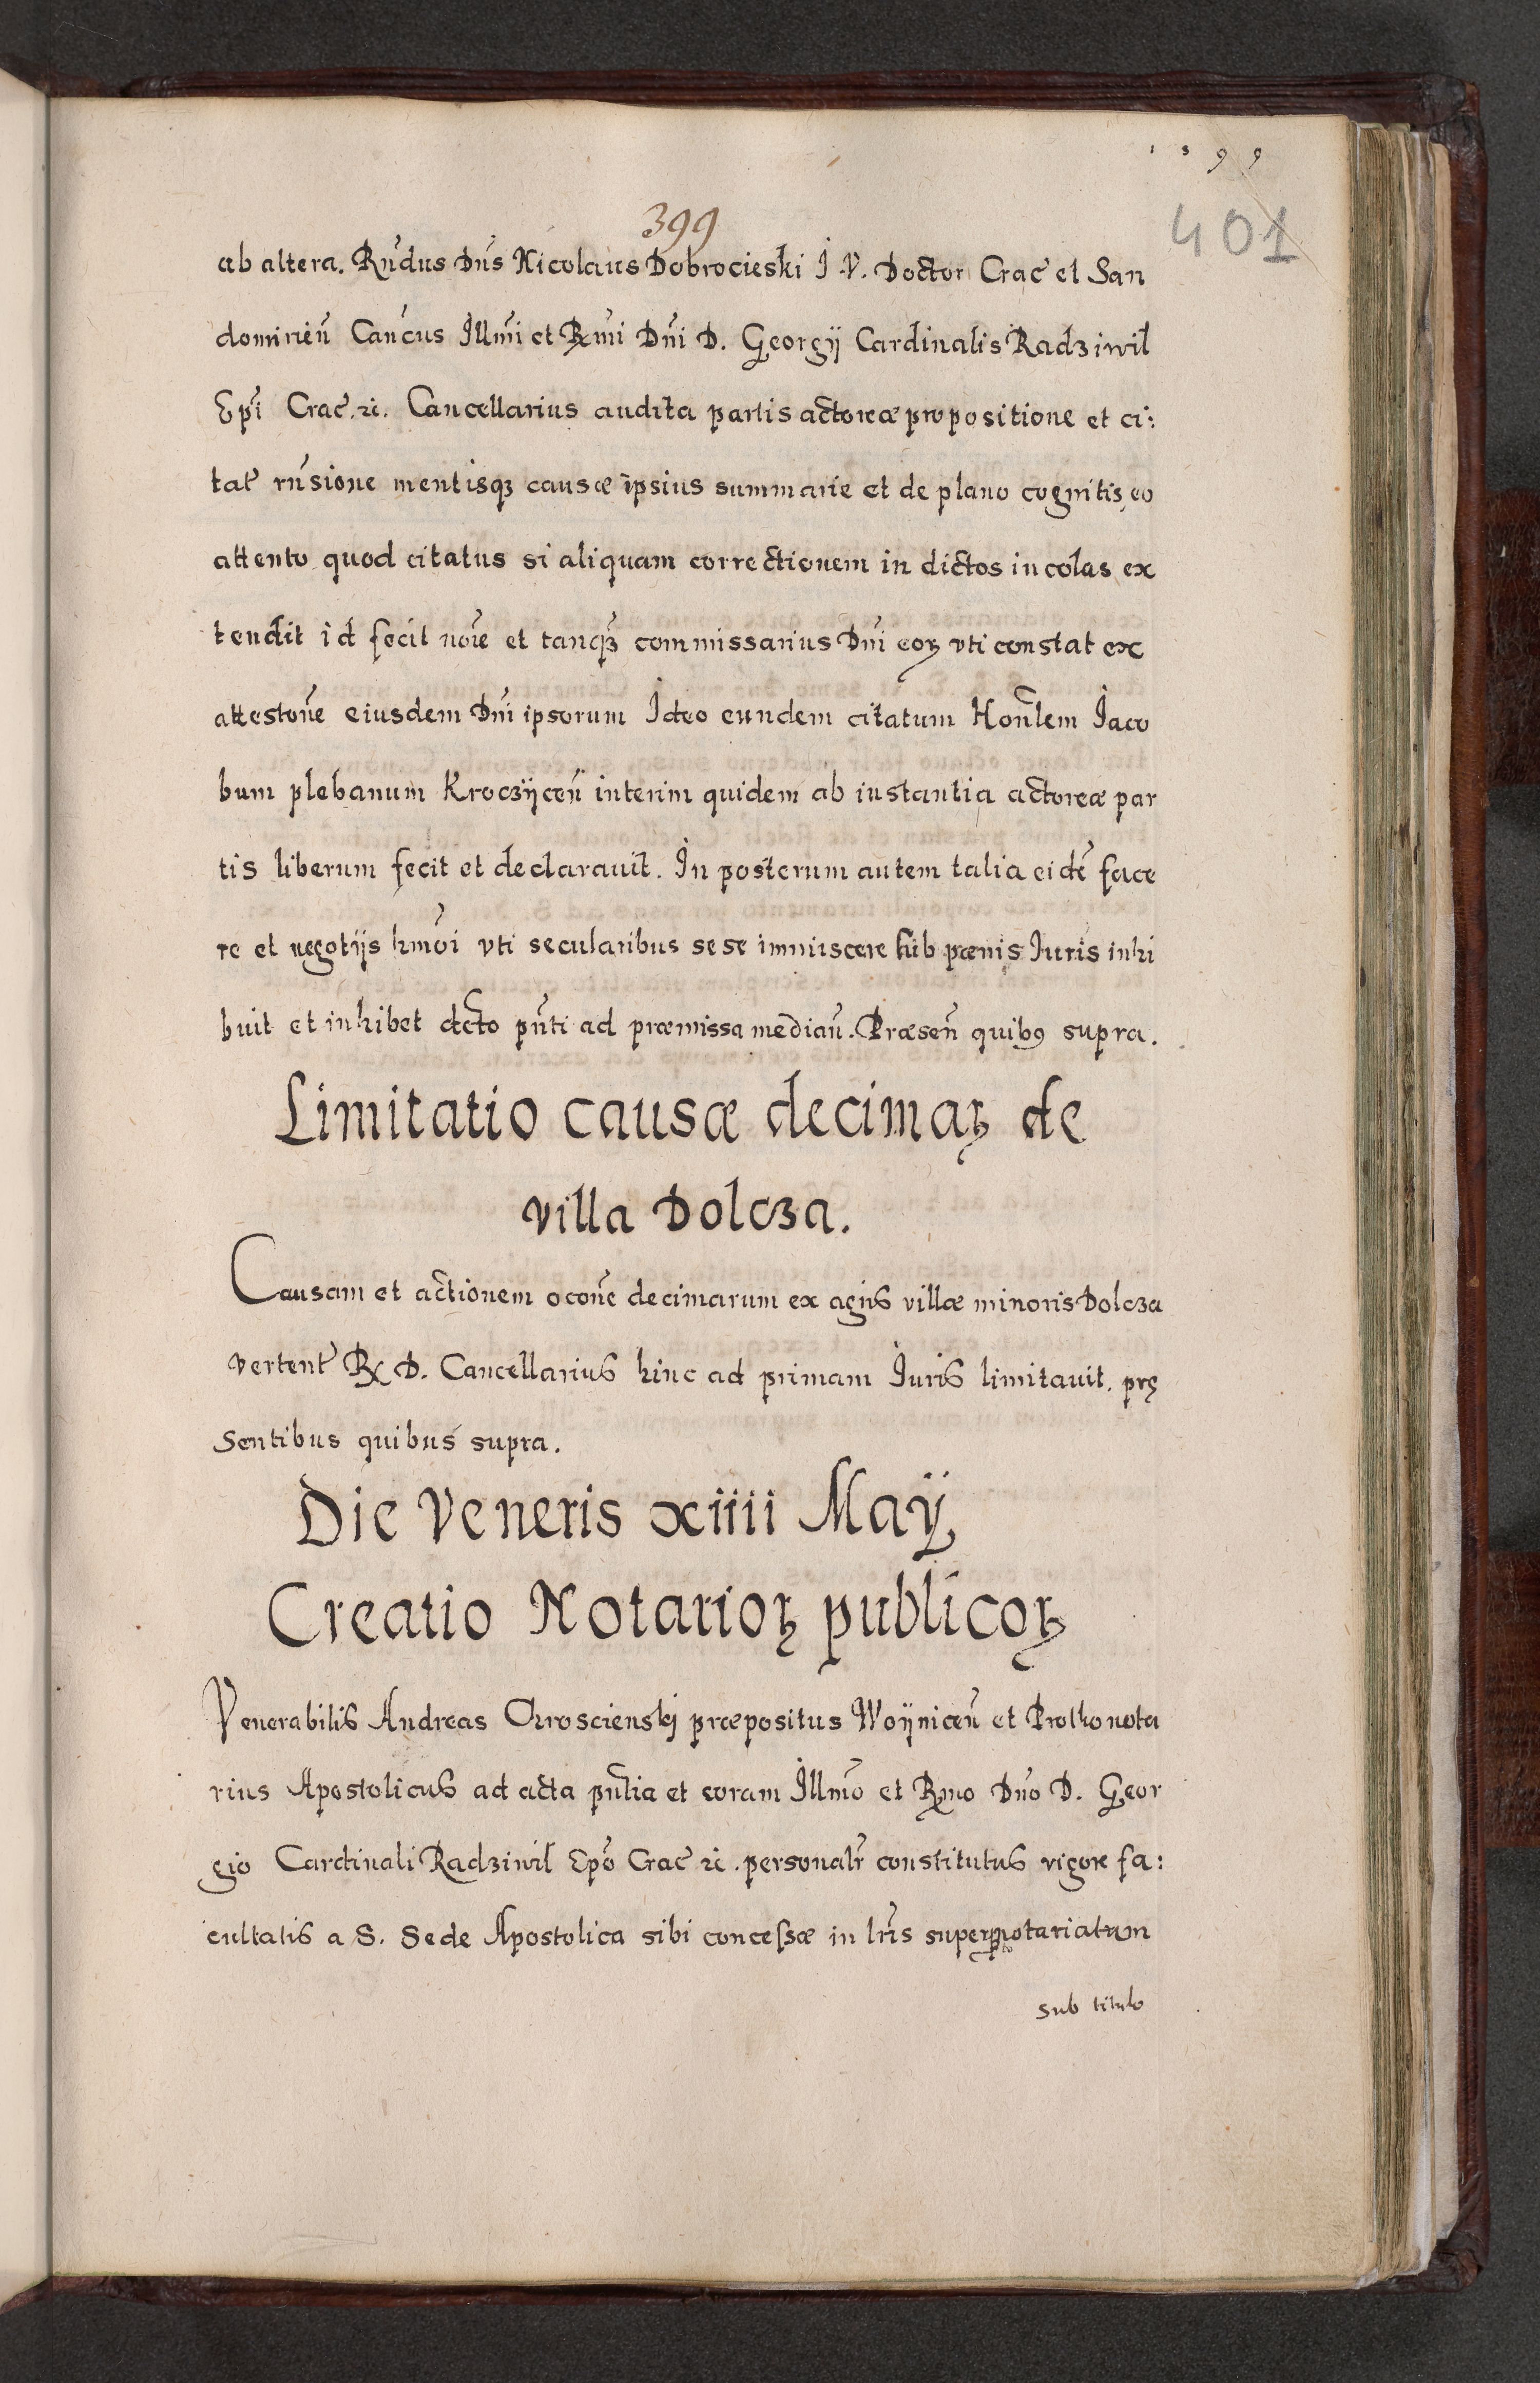 1 3 9 9
399
401
ab altera. Rn̄dus Dn̄s Nicolaus Dobrocieski I. V. Doctor Crac̄ et San
dominien̄ Can̄cus Illm̄i et Rm̄i Dn̄i D. Georgij Cardinalis Radziwil
Ep̄i Crac̄. ꝛc. Cancellarius audita partis actoreæ propositione et ci:
tat̄ rn̄sione mentisqꝫ causæ ipsius summarie et de plano cognitis eo
attento quod citatus si aliquam correctionem in dictos incolas ex
tendit id fecit noīe et tanqꝫ commissarius Dn̄i eoꝝ vti constat ex
attestōne eiusdem Dn̄i ipsorum Ideo eundem citatum Hon̄lem Iaco
bum plebanum Kroczijcen̄ interim quidem ab instantia actoreæ par
tis liberum fecit et declarauit. In posterum autem talia eidē face
re et negotijs hmōi vti secularibus sese immiscere sub pœnis Iuris inhi
buit et inhibet dcto pn̄ti ad præmissa median̄. Præsen̄ quibꝰ supra.
Limitatio causæ decimaꝝ de
villa Dolcza.
Causam et actionem occōne decimarum ex agris villæ minoris Dolcza
vertent̄ R. D. Cancellarius hinc ad primam Iuris limitauit. prę
sentibus quibus supra.
Die Veneris xiiii Maij
Creatio Notarioꝝ publicoꝝ
Venerabilis Andreas præpositus Woijnicen̄ et Prothonota
rius Apostolicus ad acta pn̄tia et coram Illmō et Rmo Dn̄o D. Geor
gio Cardinali Radziwil Ep̄o Crac̄ ꝛc. personalr̄ constitutus vigore fa:
cultatis a S. Sede Apostolica sibi concessæ in lr̄is super notariatum
sub titulo